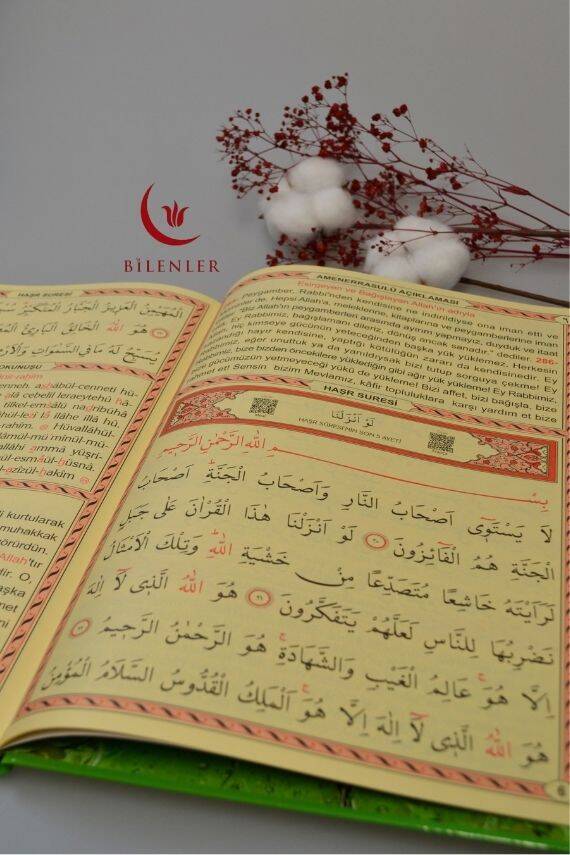 BİLENLER
HAŞR SURESİ
الْمُهَيْمِنُ الْعَزِيزُ الْجَبَّارُ الْمُتَكَبِّرُ
هُوَ اللّٰهُ الْخَالِقُ الْبَارِئُ
يُسَبِّحُ لَهُ مَا فِي السَّمٰوَاتِ وَالْاَرْضِ
OKUNUŞU
ashâbül-cenneti hü-
celi leraeytehû
emsâlü nadribühâ
ilâhe illâ hû,
rahîm. Hüvallâhül-
mü'minül-mü-
ammâ yüşri-
esmâül-hüsnâ.
azîzül-hakîm
kurtularak
muhakkak
görürdün.
Allah'tır
O,
AMENERRASULÜ AÇIKLAMASI
Esirgeyen ve Bağışlayan Allah'ın adıyla
Peygamber, Rabbi'nden kendisine ne indirildiyse ona iman etti ve
de. Hepsi Allah'a, meleklerine, kitaplarına ve peygamberlerine iman
"Biz Allah'ın peygamberleri arasında ayırım yapmayız, duyduk ve itaat
Ey Rabbimiz, bağışlamanı dileriz, dönüş ancak sanadır." dediler. 286-
hiç kimseye gücünün yeteceğinden başka yük yüklemez. Herkesin
hayır kendisine, yaptığı kötülüğün zararı da kendisinedir. Ey
eğer unuttuk ya da yanıldıysak bizi tutup sorguya çekme! Ey
bize bizden öncekilere yüklediğin gibi ağır yük yükleme! Ey Rabbimiz,
gücümüzün yetmeyeceği yükü de yükleme! Bizi affet, bizi bağışla, bize
et! Sensin bizim Mevlamız, kâfir topluluklara karşı yardım et bize
HAŞR SURESİ
لَوْ اَنْزَلْنَا
HAŞR SÛRESİNİN SON 5 AYETİ
بِسْمِ اللّٰهِ الرَّحْمٰنِ الرَّحِيمِ
لَا يَسْتَوٖٓى اَصْحَابُ النَّارِ وَاَصْحَابُ الْجَنَّةِۜ اَصْحَابُ
الْجَنَّةِ هُمُ الْفَٓائِزُونَ ٢٠ لَوْ اَنْزَلْنَا هٰذَا الْقُرْاٰنَ عَلٰى جَبَلٍ
لَرَاَيْتَهُ خَاشِعًا مُتَصَدِّعًا مِنْ خَشْيَةِ اللّٰهِۜ وَتِلْكَ الْاَمْثَالُ
نَضْرِبُهَا لِلنَّاسِ لَعَلَّهُمْ يَتَفَكَّرُونَ ٢١ هُوَ اللّٰهُ الَّذٖى لَٓا اِلٰهَ
اِلَّا هُوَۚ عَالِمُ الْغَيْبِ وَالشَّهَادَةِۚ هُوَ الرَّحْمٰنُ الرَّحٖيمُ ٢٢
هُوَ اللّٰهُ الَّذٖى لَٓا اِلٰهَ اِلَّا هُوَۚ اَلْمَلِكُ الْقُدُّوسُ السَّلَامُ الْمُؤْمِنُ